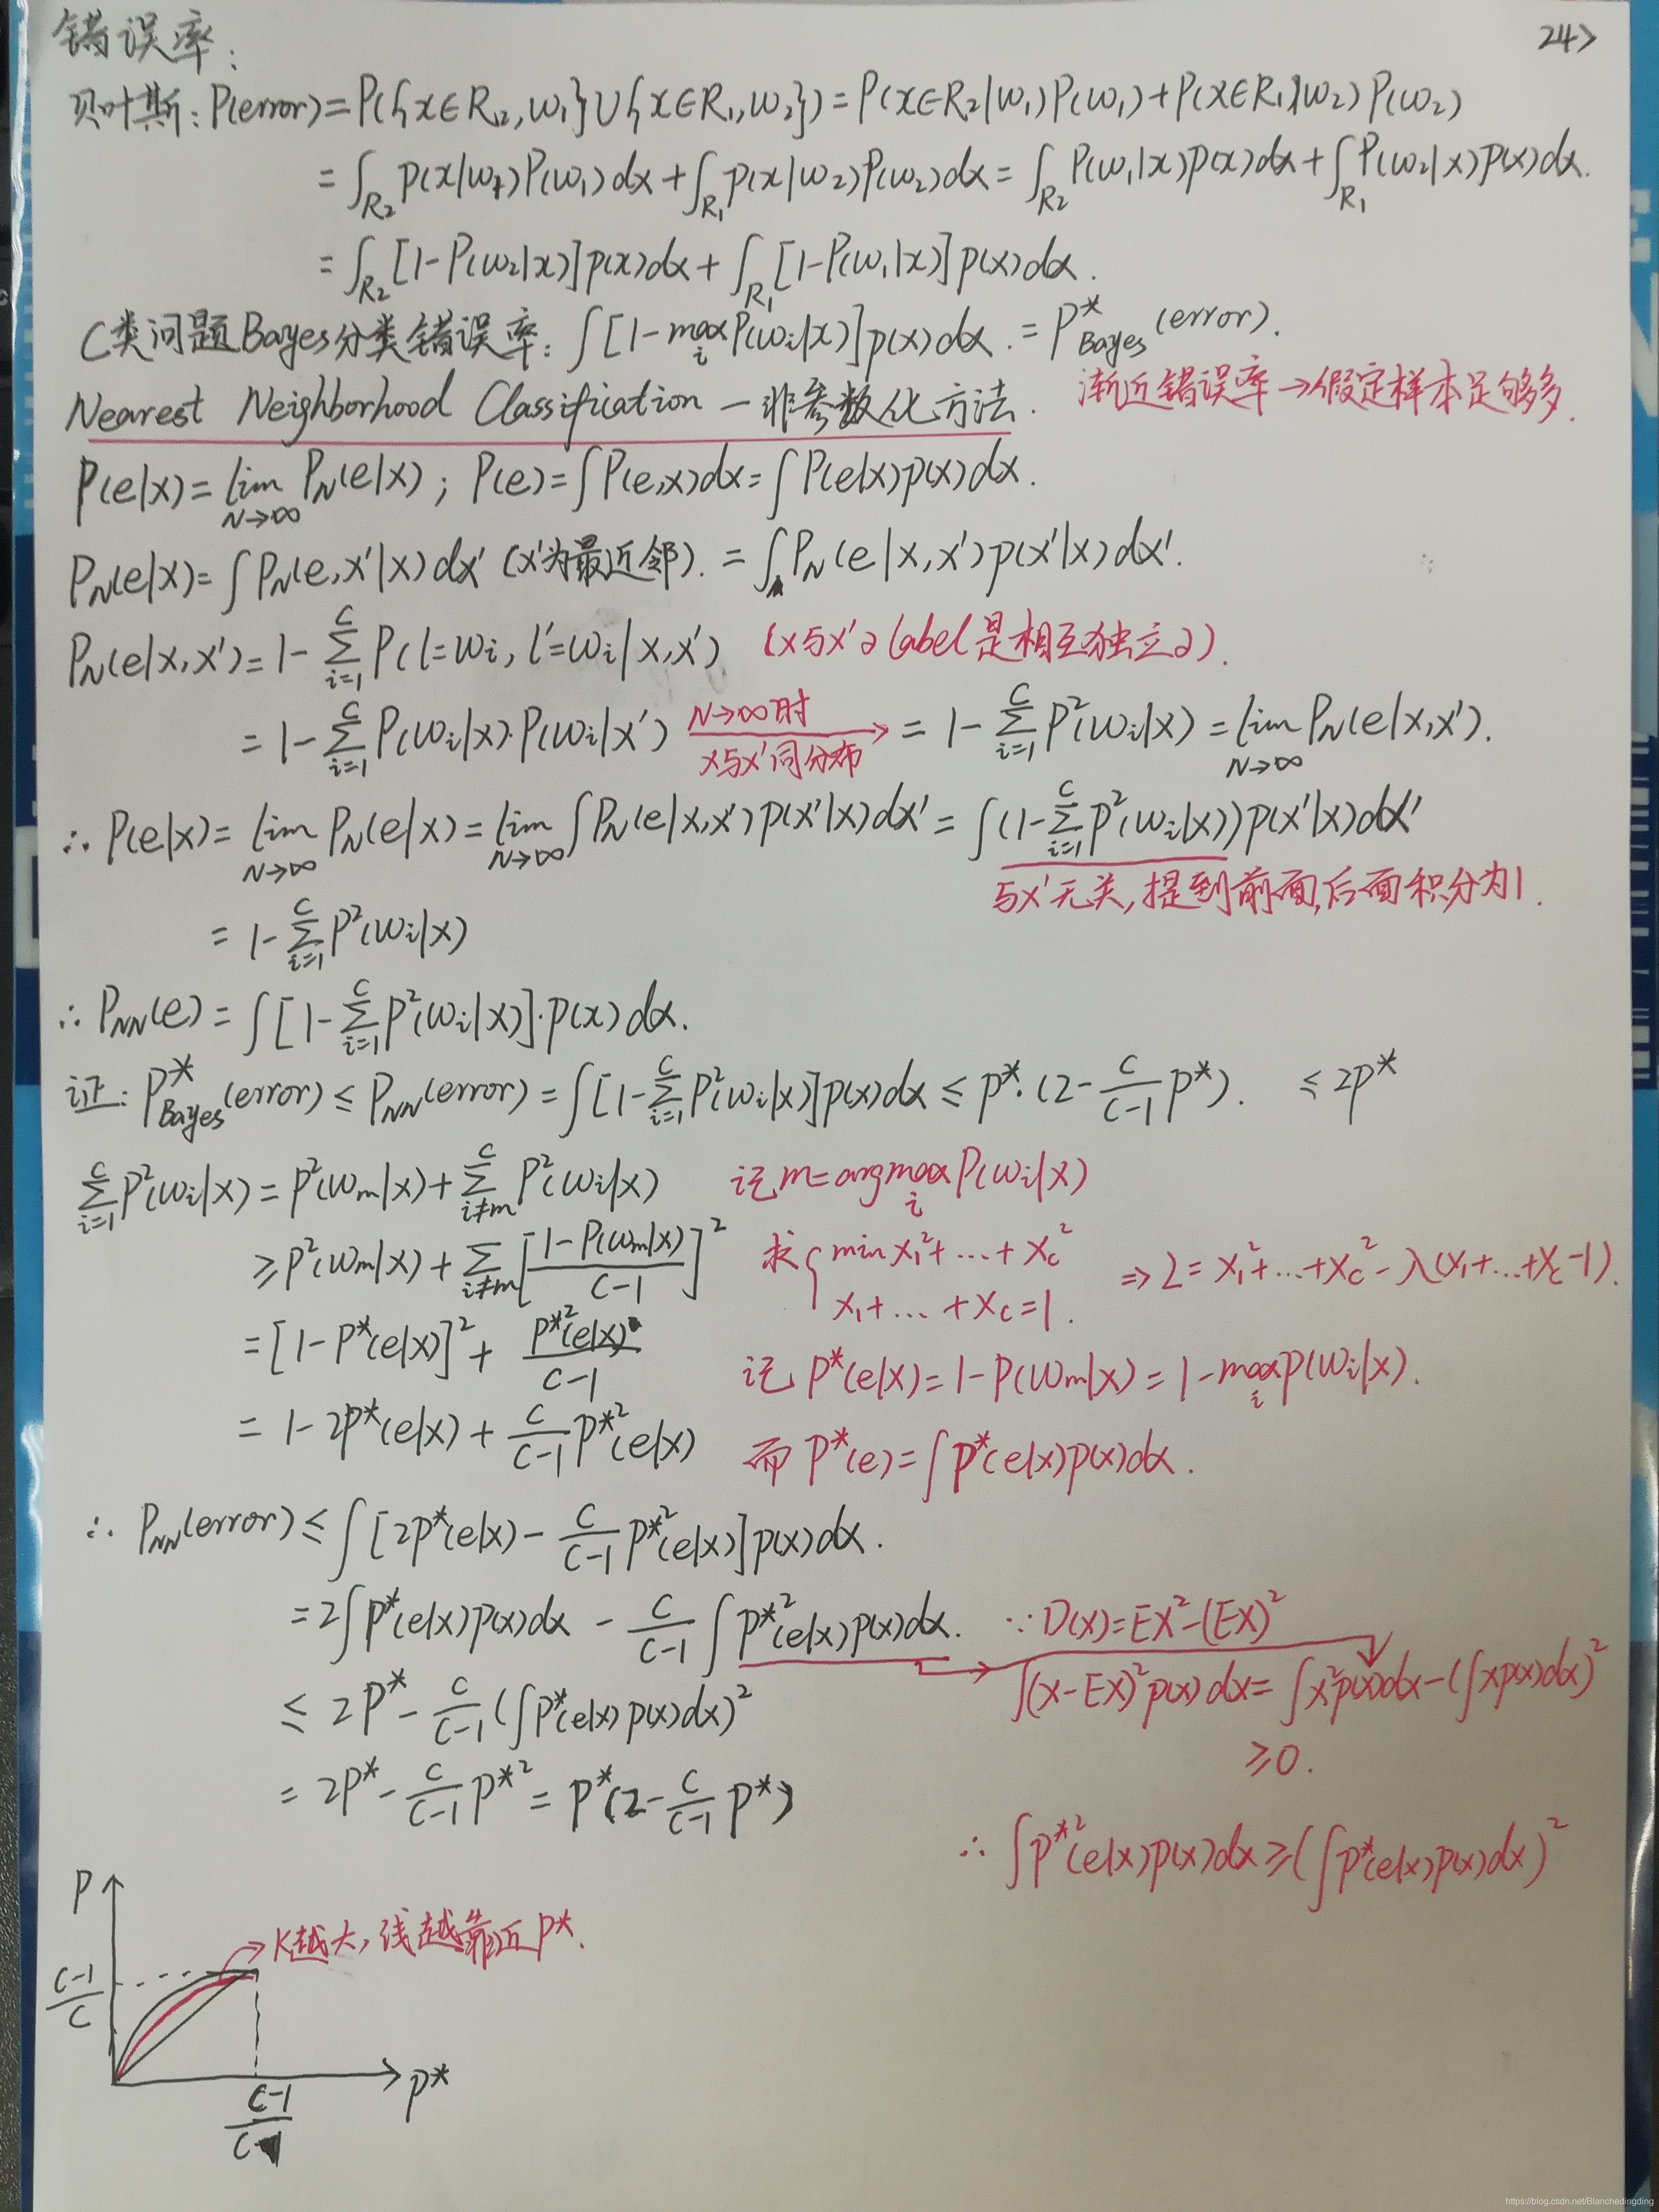 错误率:
24>
贝叶斯: P(error)=P({x∈R₂,w₁}∪{x∈R₁,w₂})=P(x∈R₂|w₁)P(w₁)+P(x∈R₁|w₂)P(w₂)
=∫_{R₂} p(x|w₁)P(w₁)dx+∫_{R₁} p(x|w₂)P(w₂)dx=∫_{R₂} P(w₁|x)p(x)dx+∫_{R₁} P(w₂|x)p(x)dx.
=∫_{R₂} [1-P(w₂|x)]p(x)dx+∫_{R₁} [1-P(w₁|x)]p(x)dx.
C类问题Bayes分类错误率: ∫[1-max_i P(wᵢ|x)]p(x)dx.=P*_{Bayes}(error).
Nearest Neighborhood Classification — 非参数化方法. 渐近错误率→假定样本足够多.
P(e|x)=lim_{N→∞} P_N(e|x); P(e)=∫P(e,x)dx=∫P(e|x)p(x)dx.
P_N(e|x)=∫P_N(e,x'|x)dx' (x'为最近邻).=∫P_N(e|x,x')p(x'|x)dx'.
P_N(e|x,x')=1-∑_{i=1}^{C} P(l=wᵢ, l'=wᵢ|x,x') (x与x'の label 是相互独立の).
=1-∑_{i=1}^{C} P(wᵢ|x)·P(wᵢ|x') N→∞时 x与x'同分布 → =1-∑_{i=1}^{C} P²(wᵢ|x)=lim_{N→∞} P_N(e|x,x').
∴ P(e|x)=lim_{N→∞} P_N(e|x)=lim_{N→∞} ∫P_N(e|x,x')p(x'|x)dx'=∫(1-∑_{i=1}^{C} P²(wᵢ|x))p(x'|x)dx'
与x'无关,提到前面,后面积分为1.
=1-∑_{i=1}^{C} P²(wᵢ|x)
∴ P_{NN}(e)=∫[1-∑_{i=1}^{C} P²(wᵢ|x)]·p(x)dx.
证: P*_{Bayes}(error)≤P_{NN}(error)=∫[1-∑_{i=1}^{C} P²(wᵢ|x)]p(x)dx≤P*·(2-\frac{C}{C-1}P*). ≤2P*
∑_{i=1}^{C} P²(wᵢ|x)=P²(w_m|x)+∑_{i≠m}^{C} P²(wᵢ|x) 记 m=argmax_i P(wᵢ|x)
≥P²(w_m|x)+∑_{i≠m}[\frac{1-P(w_m|x)}{C-1}]² 求{ min x₁²+...+x_C² x₁+...+x_C=1. ⇒ L=x₁²+...+x_C²-λ(x₁+...+x_C-1).
=[1-P*(e|x)]²+\frac{P*²(e|x)}{C-1} 记 P*(e|x)=1-P(w_m|x)=1-max_i P(wᵢ|x).
=1-2P*(e|x)+\frac{C}{C-1}P*²(e|x) 而 P*(e)=∫P*(e|x)p(x)dx.
∴ P_{NN}(error)≤∫[2P*(e|x)-\frac{C}{C-1}P*²(e|x)]p(x)dx.
=2∫P*(e|x)p(x)dx-\frac{C}{C-1}∫P*²(e|x)p(x)dx. ∵ D(X)=EX²-(EX)²
∫(x-EX)²p(x)dx=∫x²p(x)dx-(∫xp(x)dx)²
≤2P*-\frac{C}{C-1}(∫P*(e|x)p(x)dx)²
≥0.
=2P*-\frac{C}{C-1}P*²=P*(2-\frac{C}{C-1}P*)
∴ ∫P*²(e|x)p(x)dx≥(∫P*(e|x)p(x)dx)²
P
K越大,线越靠近P*.
\frac{C-1}{C}
P*
C-1
https://blog.csdn.net/Blanchedingding